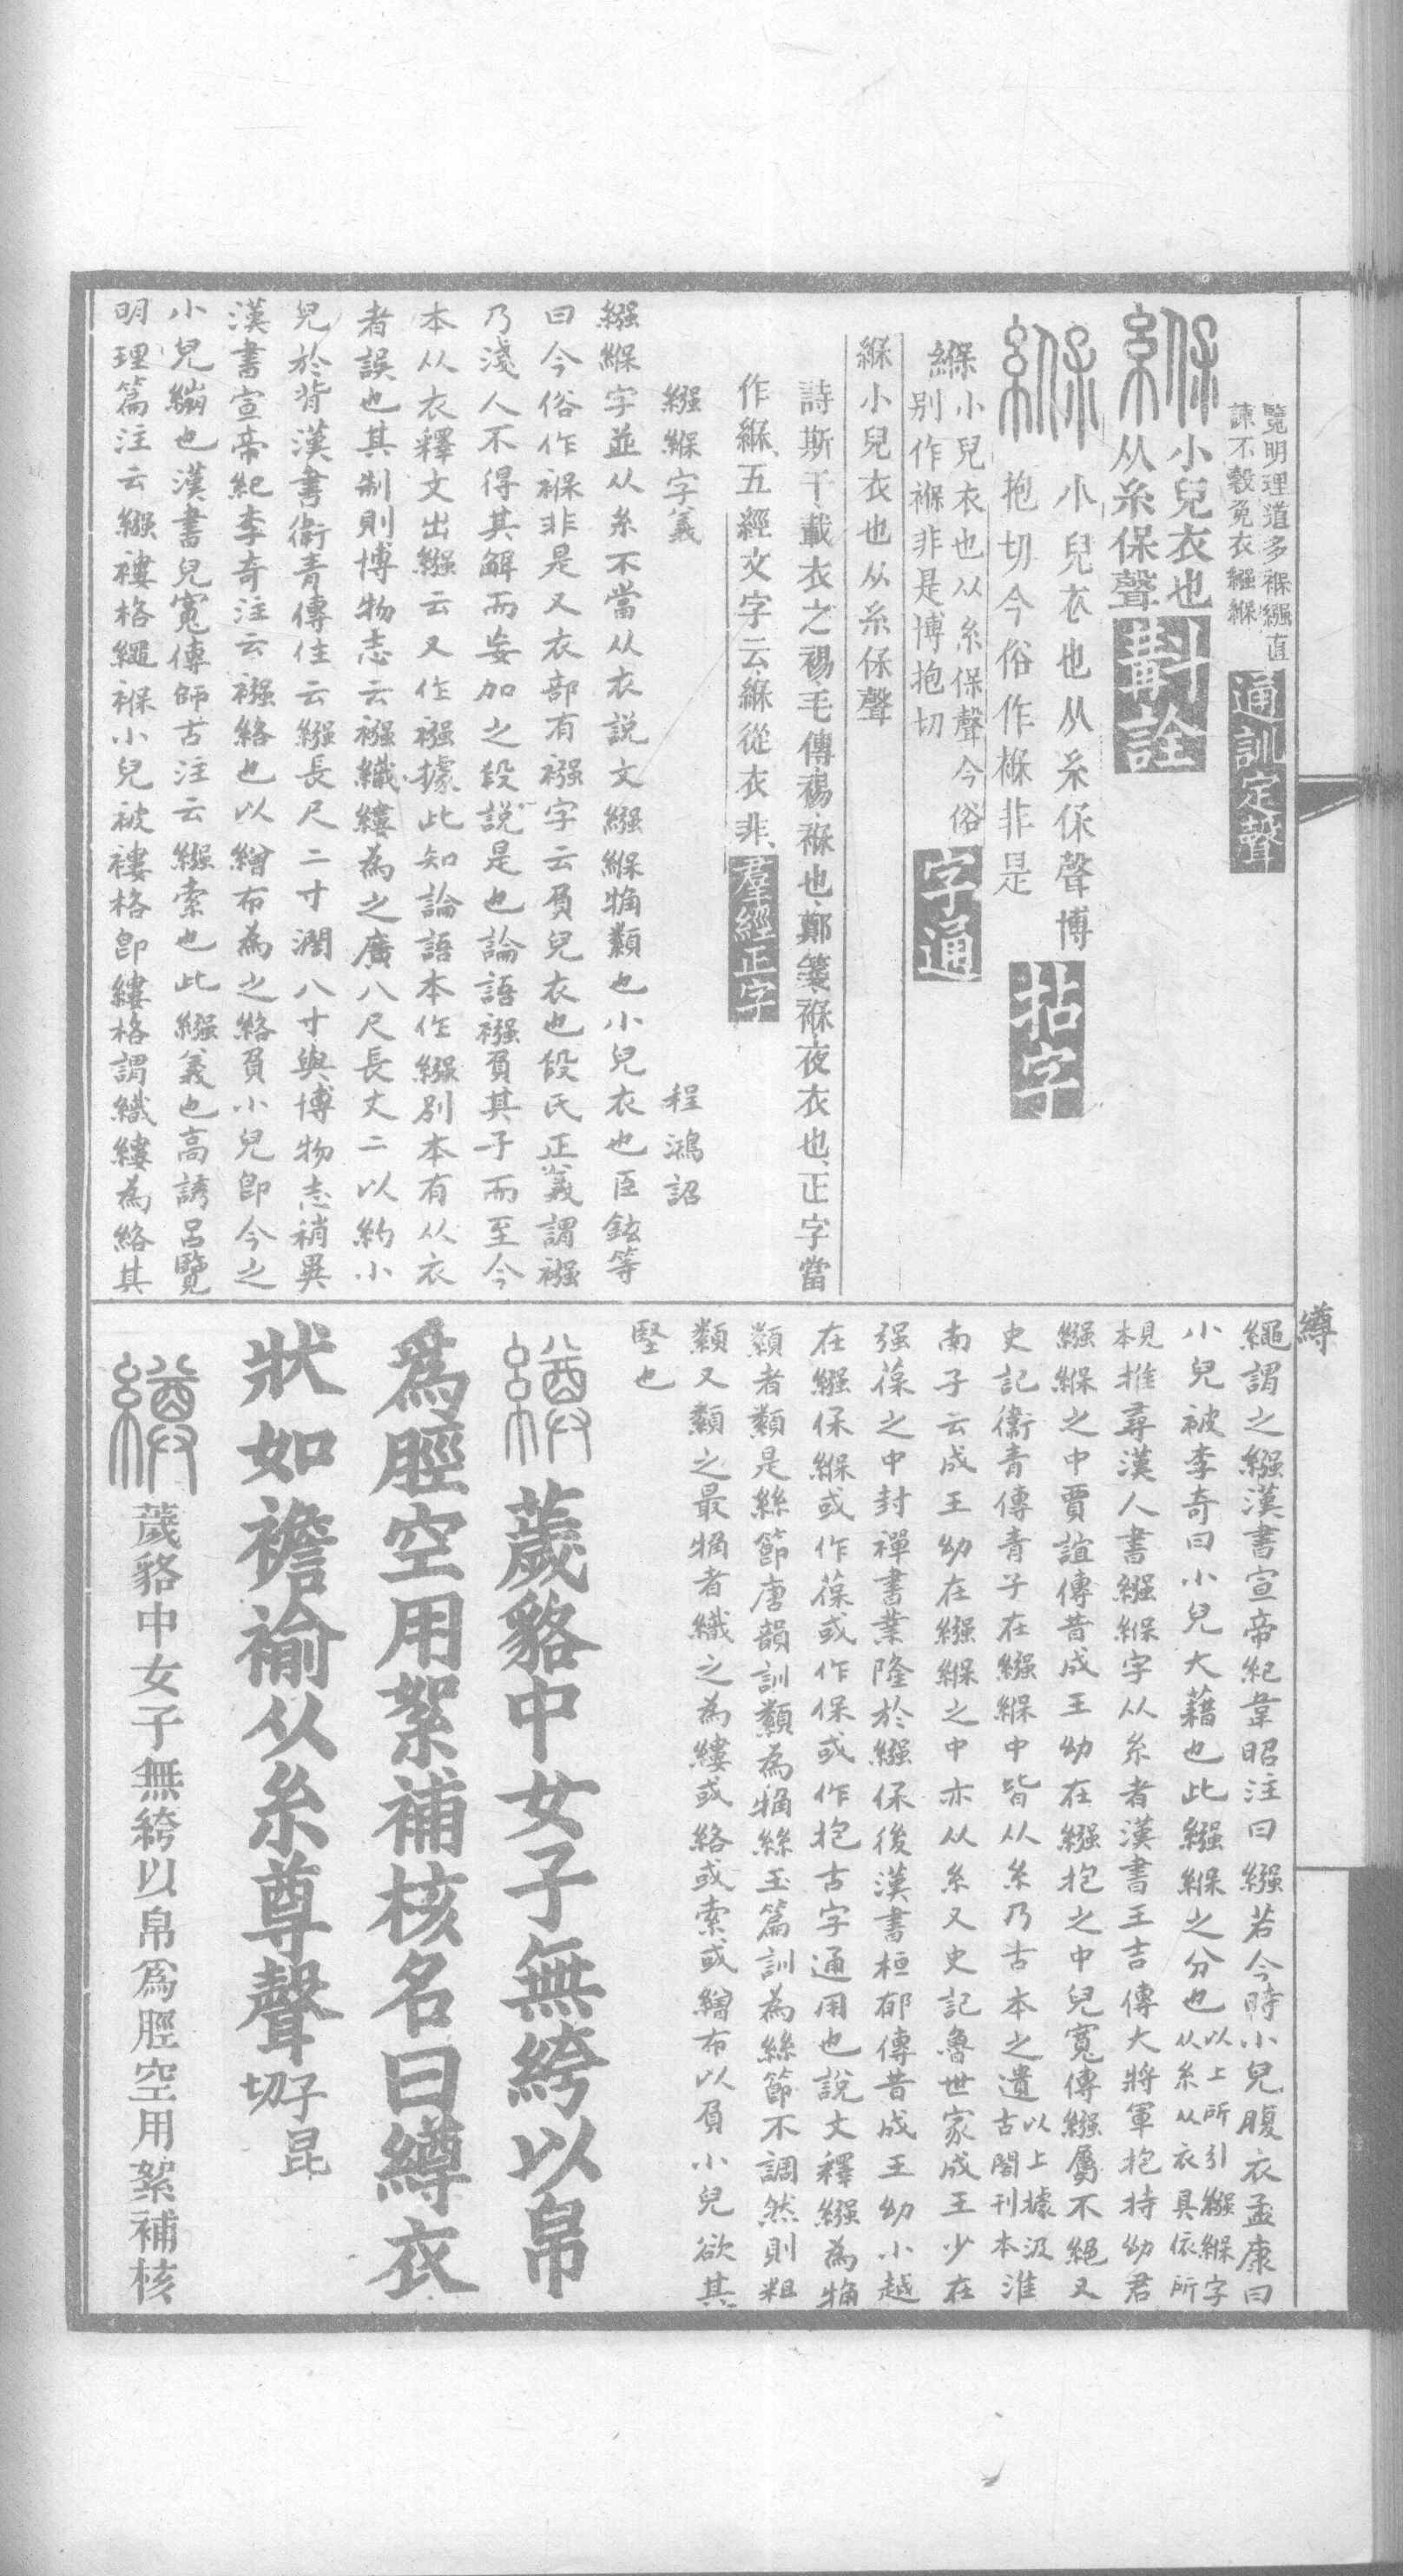 覽明理道多褓繈直
諫不穀免衣繈緥
通訓定聲
小兒衣也
从糸保聲
斠詮
小兒衣也从糸保聲博
抱切今俗作褓非是
拈字
緥
小兒衣也以糸保聲今俗
别作褓非是博抱切
字通
緥小兒衣也从糸保聲
詩斯干載衣之裼毛傳裼褓也鄭箋褓夜衣也正字當
作緥五經文字云緥從衣非
羣經正字
繈緥字義
程鴻詔
繈緥字並从糸不當从衣說文繈緥觕纇也小兒衣也臣鉉等
曰今俗作褓非是又衣部有襁字云負兒衣也段氏正義謂襁
乃淺人不得其解而妄加之段說是也論語襁負其子而至今
本从衣釋文出繈云又作襁據此知論語本作繈别本有从衣
者誤也其制則博物志云襁織縷為之廣八尺長丈二以約小
兒於背漢書衛青傳住云繈長尺二寸濶八寸與博物志稍異
漢書宣帝紀李奇注云襁絡也以繒布為之絡負小兒卽今之
小兒繃也漢書兒寬傳師古注云繈索也此繈義也高誘呂覽
明理篇注云繈褸格繩褓小兒被褸格卽縷格謂織縷為絡其
繜
繩謂之繈漢書宣帝紀韋昭注曰繈若今時小兒腹衣孟康曰
小兒被李奇曰小兒大藉也此繈緥之分也以上所引繈緥字从糸从衣具依所
見本推尋漢人書繈緥字从糸者漢書王吉傳大將軍抱持幼君
繈緥之中賈誼傳昔成王幼在繈抱之中兒寬傳繈屬不絕又
史記衛青傳青子在繈緥中皆从糸乃古本之遺以上據汲古閣刊本淮
南子云成王幼在繈緥之中亦从糸又史記魯世家成王少在
强葆之中封禪書業隆於繈保後漢書桓郁傳昔成王幼小越
在繈保緥或作葆或作保或作抱古字通用也說文釋繈為觕
纇者纇是絲節唐韻訓纇為觕絲玉篇訓為絲節不調然則粗
纇又纇之最觕者織之為縷或絡或索或繒布以負小兒欲其
堅也
薉貉中女子無絝以帛
爲脛空用絮補核名曰繜衣
狀如襜褕从糸尊聲子昆切
薉貉中女子無絝以帛爲脛空用絮補核